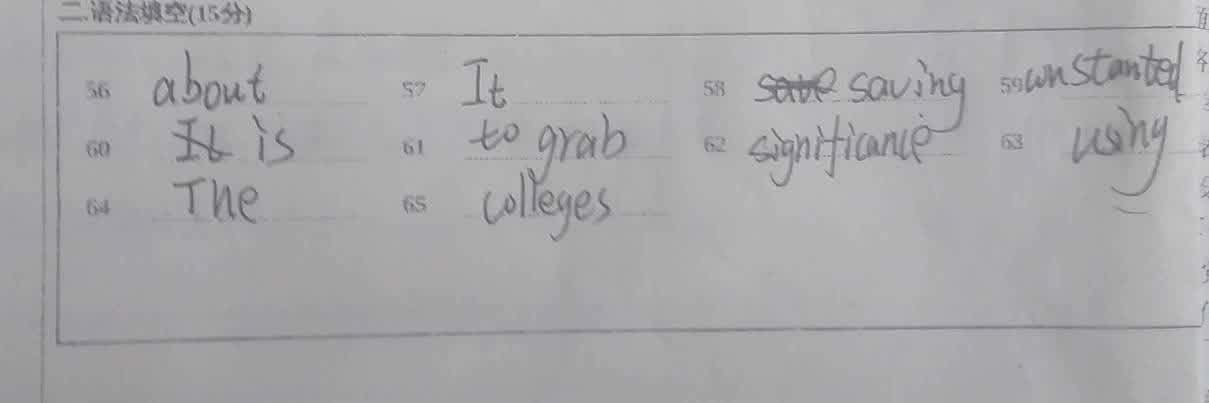 二.语法填空(15分)
56 about 57 It 58 save saving 59 constanted
60 It is 61 to grab 62 significance 63 using
64 The 65 colleges